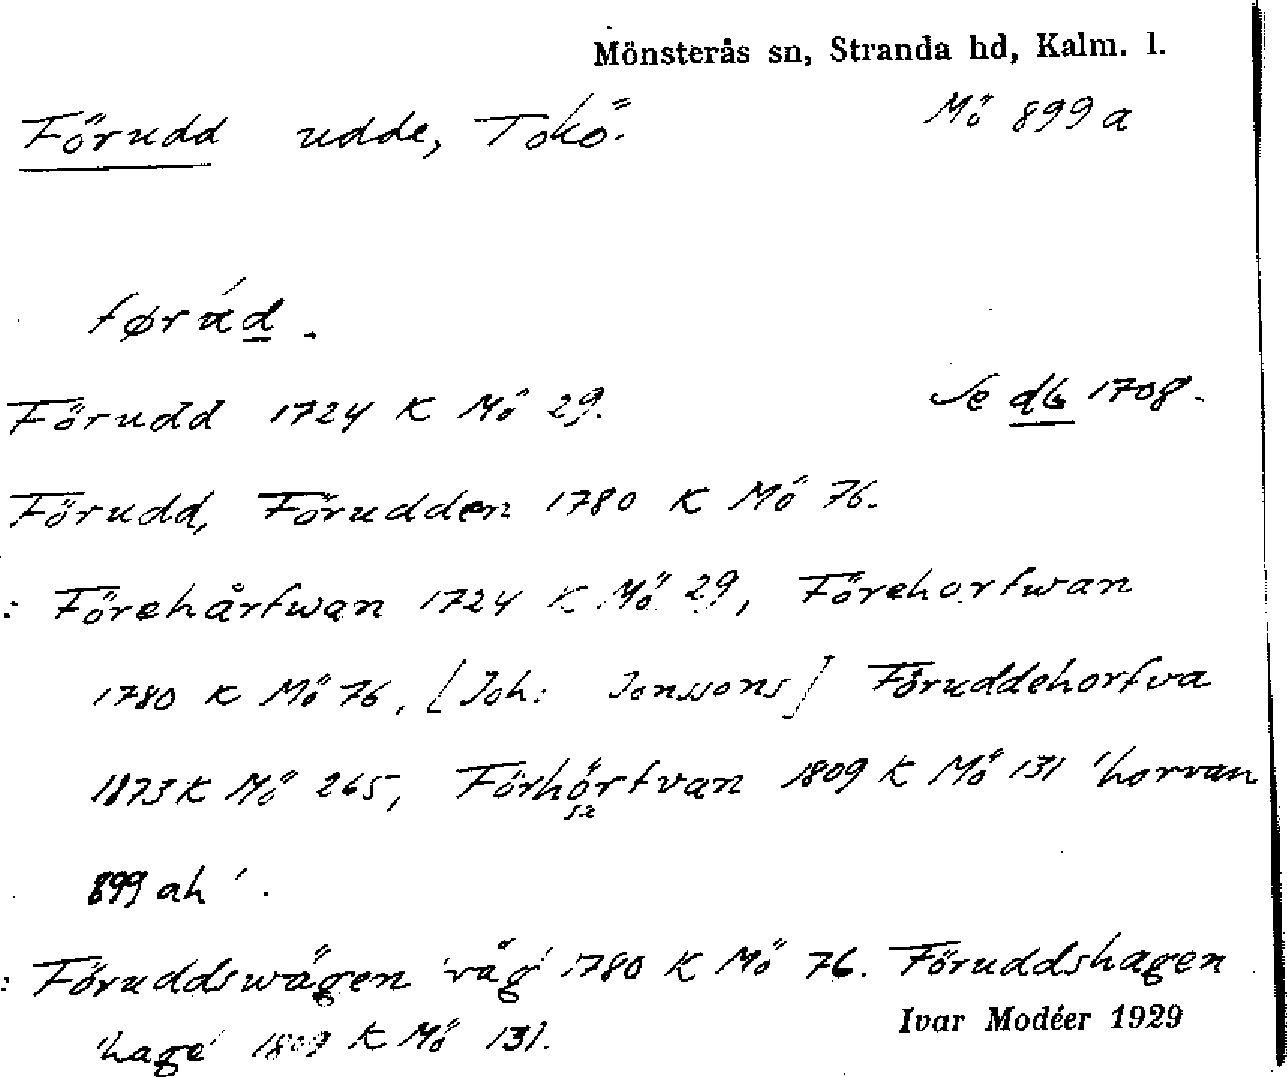 Mönsterås sn, Stranda hd, Kalm. l.
Förudd udde, Tokö. Mö 899 a
førúd.
Förudd 1724 K Mö 29. Se db 1708.
Förudd, Förudden 1780 K Mö 76.
: Förehårfwan 1724 K Mö 29, Förehorfwan
1780 K Mö 76, [Joh: Jonssons] Föruddehorfva
1873 K Mö 265, Förhörfvan 1809 K Mö 131 'horvan
899 ah'.
: Föruddswägen 'väg' 1780 K Mö 76. Föruddshagen
'hage' 1809 K Mö 131.
Ivar Modéer 1929